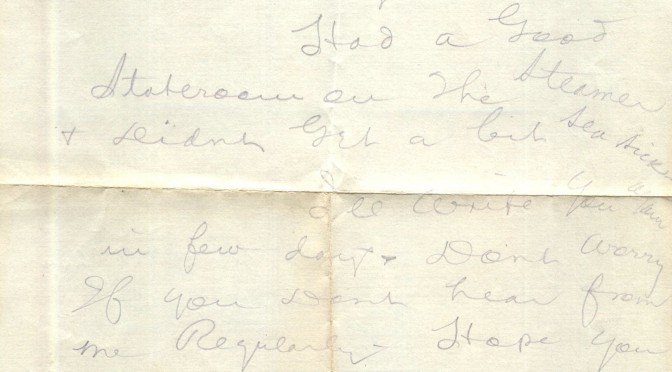 Had a Good
Stateroom on The Steamer
+ Didnt Get a bit Sea Sick
I'll Write You again
in few days + Dont Worry
If you Dont hear from
me Regularly - Hope you